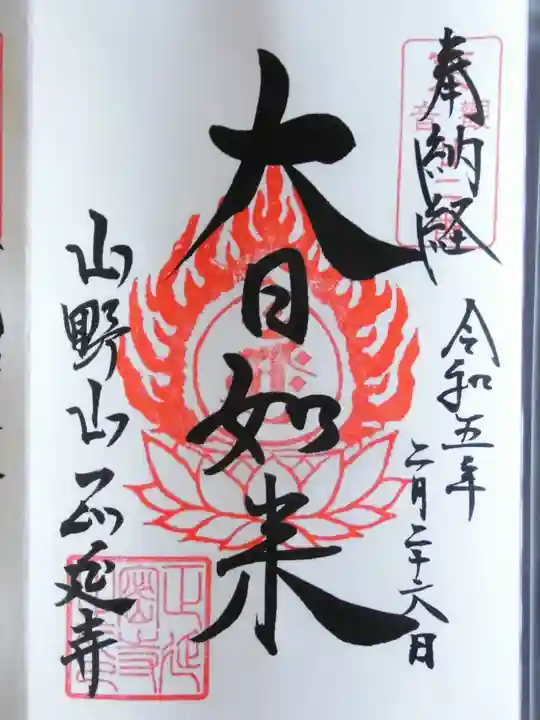 奉納経
令和五年
二月二十六日
大日如来
山野山正延寺